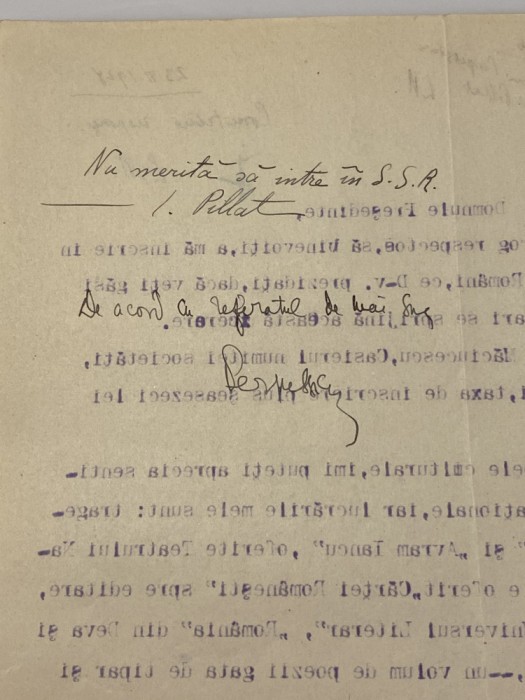 Nu merită să intre în S.S.R.
I. Pillat
Domnule Președinte,
rog respectos, să binevoiți, a mă înscrie în
Români, ce D-v. prezidați, dacă veți găsi
De acord cu referatul de mai sus
ari se sprijină această cerere.
Măciucescu, Casierul numitei societăți,
i, taxa de înscriere plus șeasezeci lei
Perpessicius
ele culturale, îmi puteți aprecia senti-
ționale, iar lucrările mele sunt: trage-
" și „Avram Iancu", oferite Teatrului Na-
e oferit „Cărței Românești" spre editare,
Universul Literar", „România" din Deva și
,--un volum de poezii gata de tipar și